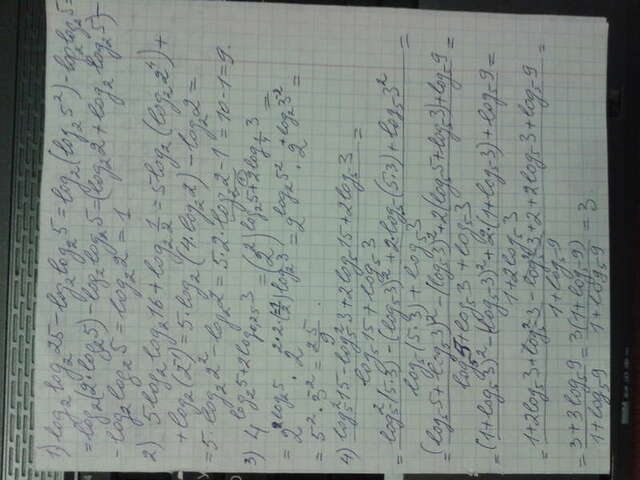 1) log₂ log₂ 25 − log₂ log₂ 5 = log₂ (log₂ 5²) − log₂ log₂ 5 =
= log₂ (2 log₂ 5) − log₂ log₂ 5 = (log₂ 2 + log₂ log₂ 5) −
− log₂ log₂ 5 = log₂ 2 = 1
2) 5 log₂ log₂ 16 + log_{1/2} 2 = 5 log₂ (log₂ 2⁴) +
+ log₂ (2⁻¹) = 5 · log₂ (4 log₂ 2) − log₂ 2 =
= 5 · log₂ 2² − log₂ 2 = 5 · 2 · log₂ 2 − 1 = 10 − 1 = 9.
3) 4^{log₂ 5 + 2 log_{0,25} 3} = (2²)^{log₂ 5 + 2 log_{1/4} 3} =
= 5² · 3⁻² = 25/9.
4) (log₅² 15 − log₅² 3 + 2 log₅ 15 + 2 log₅ 3) / (log₅ 15 + log₅ 3) =
= (log₅² (5·3) − (log₅ 3)² + 2 log₅ (5·3) + log₅ 3²) / (log₅ (5·3) + log₅ 3) =
= ((log₅ 5 + log₅ 3)² − (log₅ 3)² + 2 (log₅ 5 + log₅ 3) + log₅ 9) / (log₅ 5 + log₅ 3 + log₅ 3) =
= ((1 + log₅ 3)² − (log₅ 3)² + 2 (1 + log₅ 3) + log₅ 9) / (1 + 2 log₅ 3) =
= (1 + 2 log₅ 3 + log₅² 3 − log₅² 3 + 2 + 2 log₅ 3 + log₅ 9) / (1 + log₅ 9) =
= (3 + 3 log₅ 9) / (1 + log₅ 9) = 3 (1 + log₅ 9) / (1 + log₅ 9) = 3